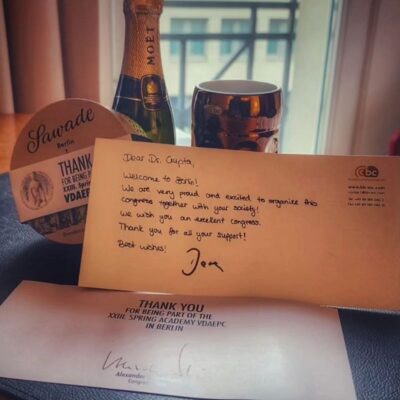 MOËT
Sawade
Berlin
THANK
FOR BEING PAR
XXIII. Spring
VDAEPC
bc
Dear Dr. Gupta,
Welcome to Berlin!
We are very proud and excited to organize this
congress together with your society!
We wish you an excellent congress.
Thank you for all your support!
Best wishes!
THANK YOU
FOR BEING PART OF THE
XXIII. SPRING ACADEMY VDAEPC
IN BERLIN
Alexander
Congress